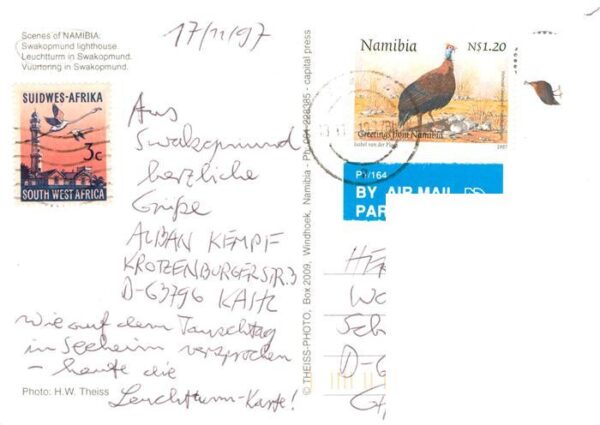 Scenes of NAMIBIA:
Swakopmund lighthouse.
Leuchtturm in Swakopmund.
Vuurtoring in Swakopmund.
17/11/97
SUIDWES-AFRIKA
3c
SOUTH WEST AFRICA
Aus
Swakopmund
herzliche
Grüße
ALBAN KEMPF
KROTZENBURGERSTR.3
D-63796 KAHL
Wie auf dem Tauschtag
in Seeheim versprochen
- heute die
Leuchtturm-Karte!
Photo: H.W. Theiss
© THEISS-PHOTO, Box 2009, Windhoek, Namibia - Ph. 061 228385 - capital press
Namibia
N$1.20
Greetings from Namibia
1997
BY AIR MAIL
PAR
HE
Wo
Sch
D-6